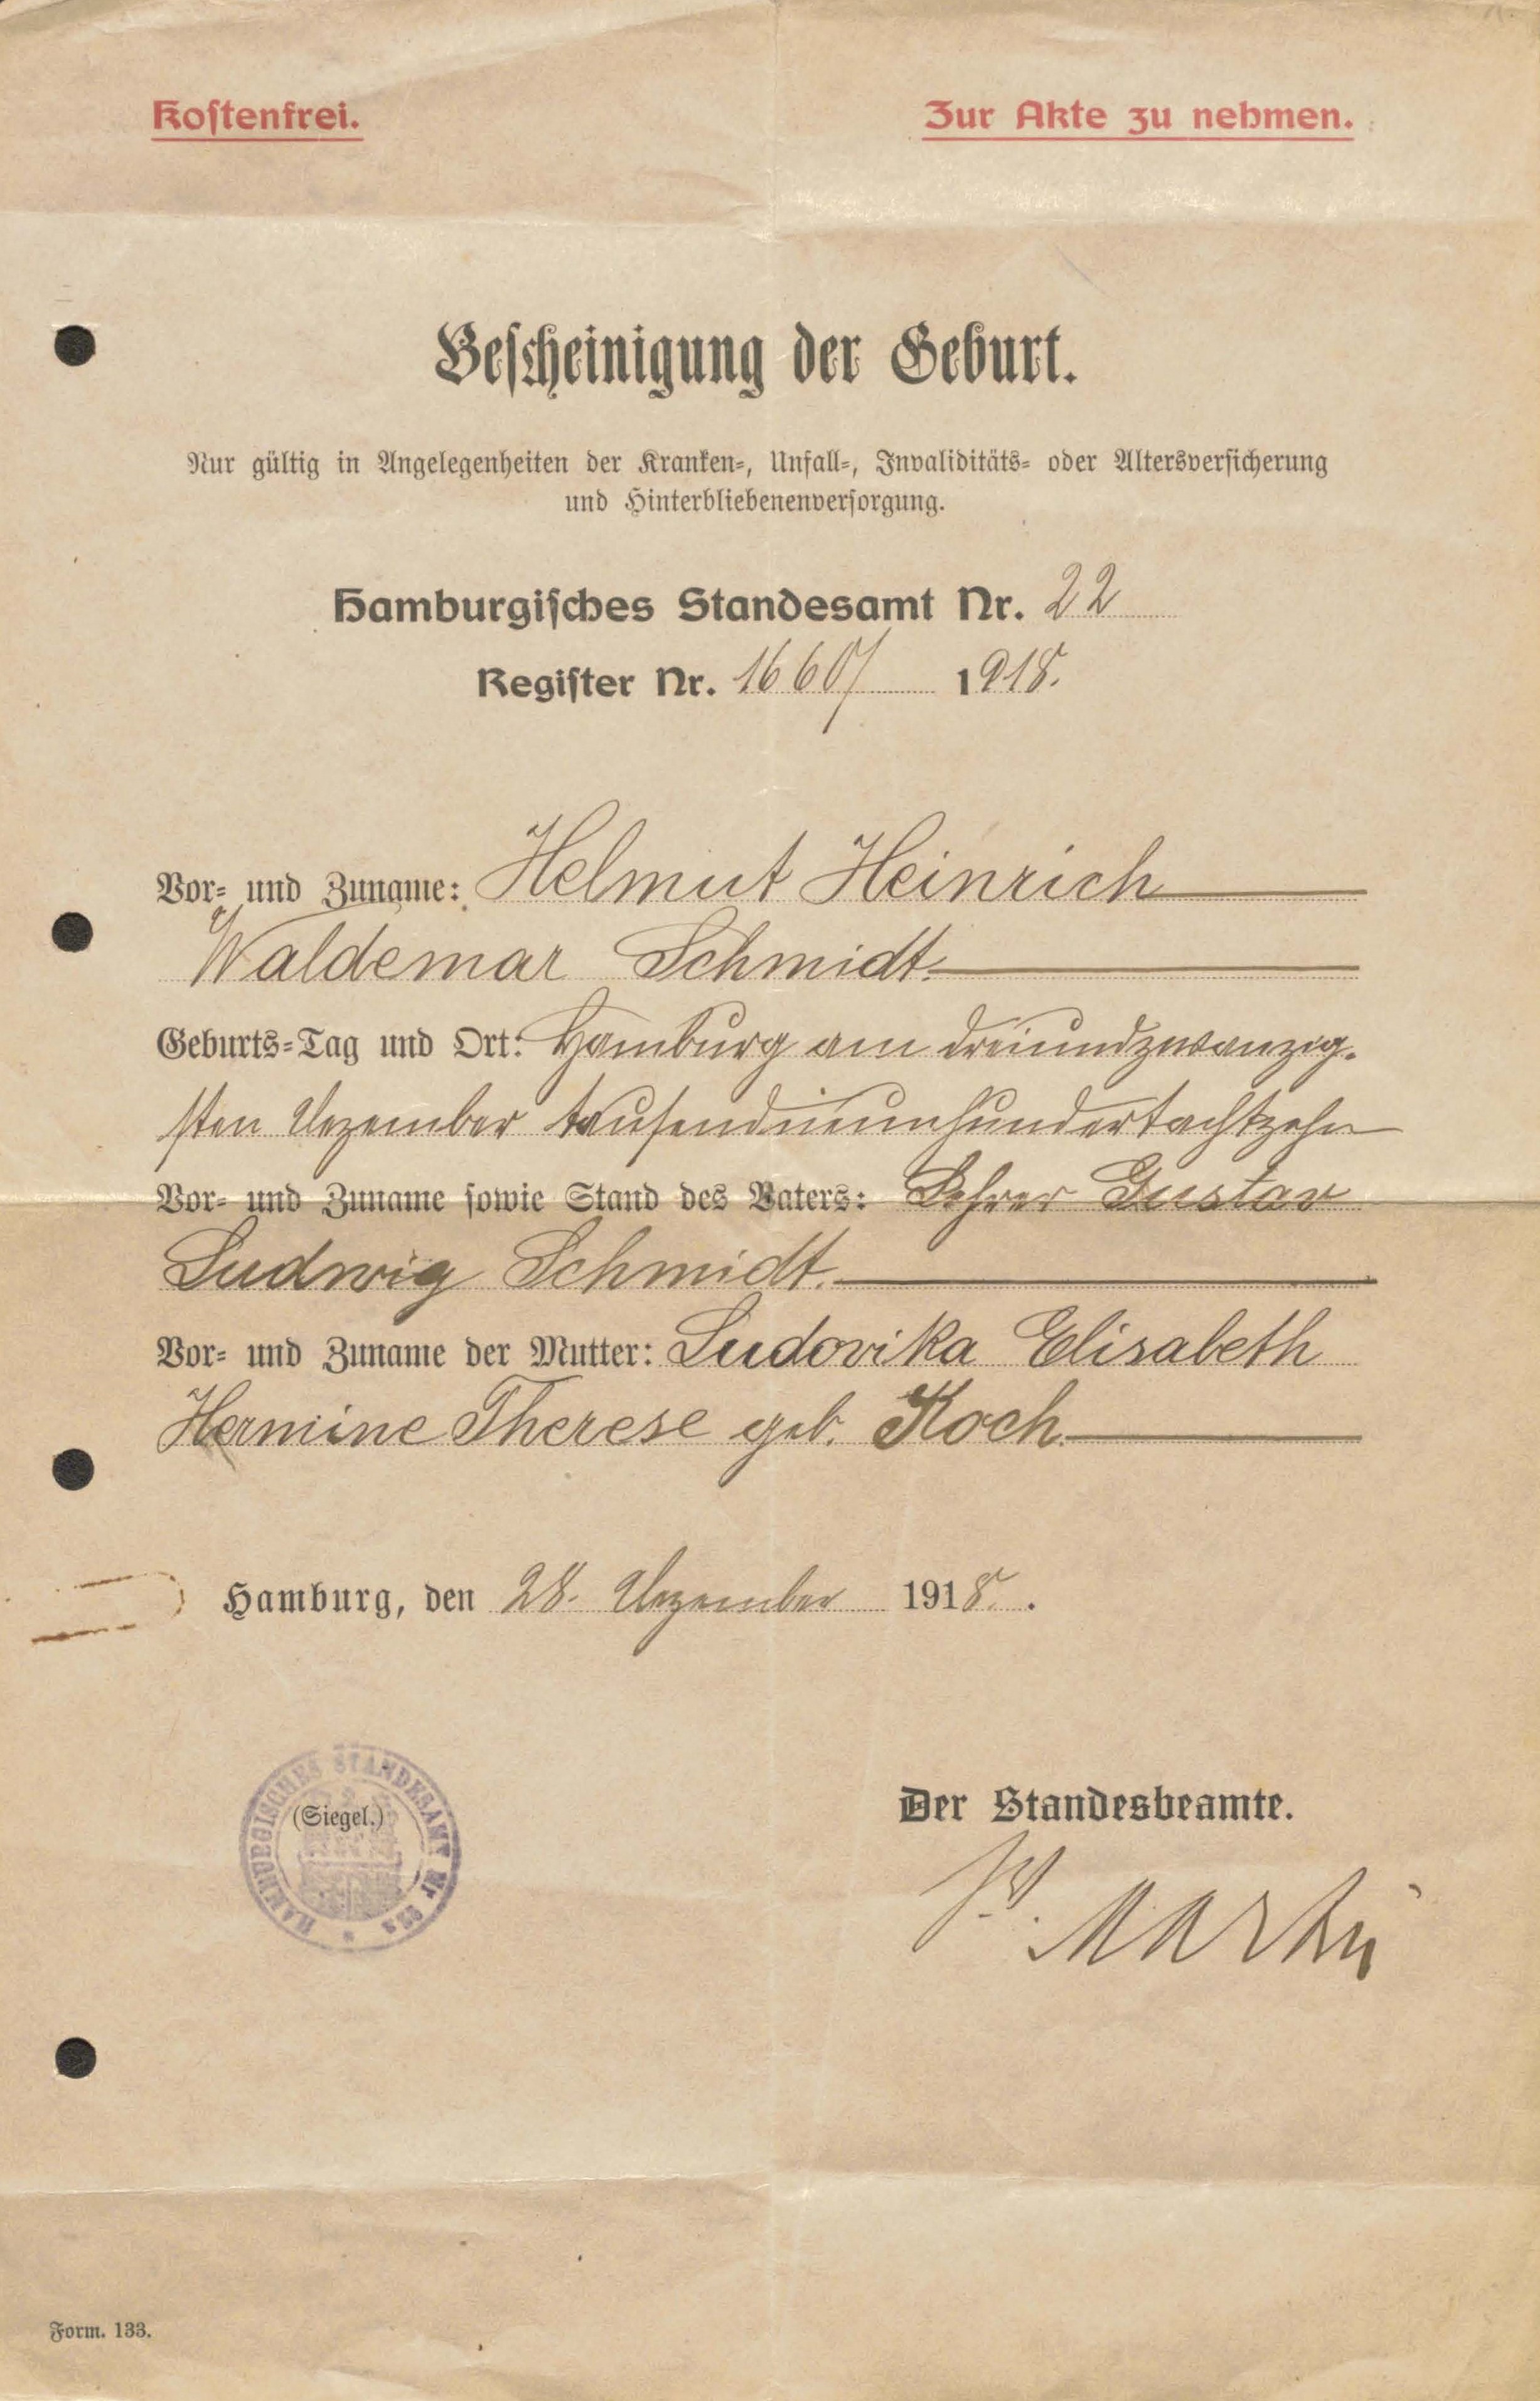 Kostenfrei.
Zur Akte zu nehmen.
Bescheinigung der Geburt.
Nur gültig in Angelegenheiten der Kranken-, Unfall-, Invaliditäts- oder Altersversicherung
und Hinterbliebenenversorgung.
Hamburgisches Standesamt Nr. 22
Register Nr. 1660/ 1918.
Vor- und Zuname: Helmut Heinrich
Waldemar Schmidt.
Geburts-Tag und Ort: Hamburg am dreiundzwanzig-
sten Dezember tausendneunhundertachtzehn
Vor- und Zuname sowie Stand des Vaters: Lehrer Gustav
Ludwig Schmidt.
Vor- und Zuname der Mutter: Ludovika Elisabeth
Hermine Therese geb. Koch.
Hamburg, den 28. Dezember 1918.
HAMBURGISCHES STANDESAMT Nr
(Siegel.)
Der Standesbeamte.
Form. 133.